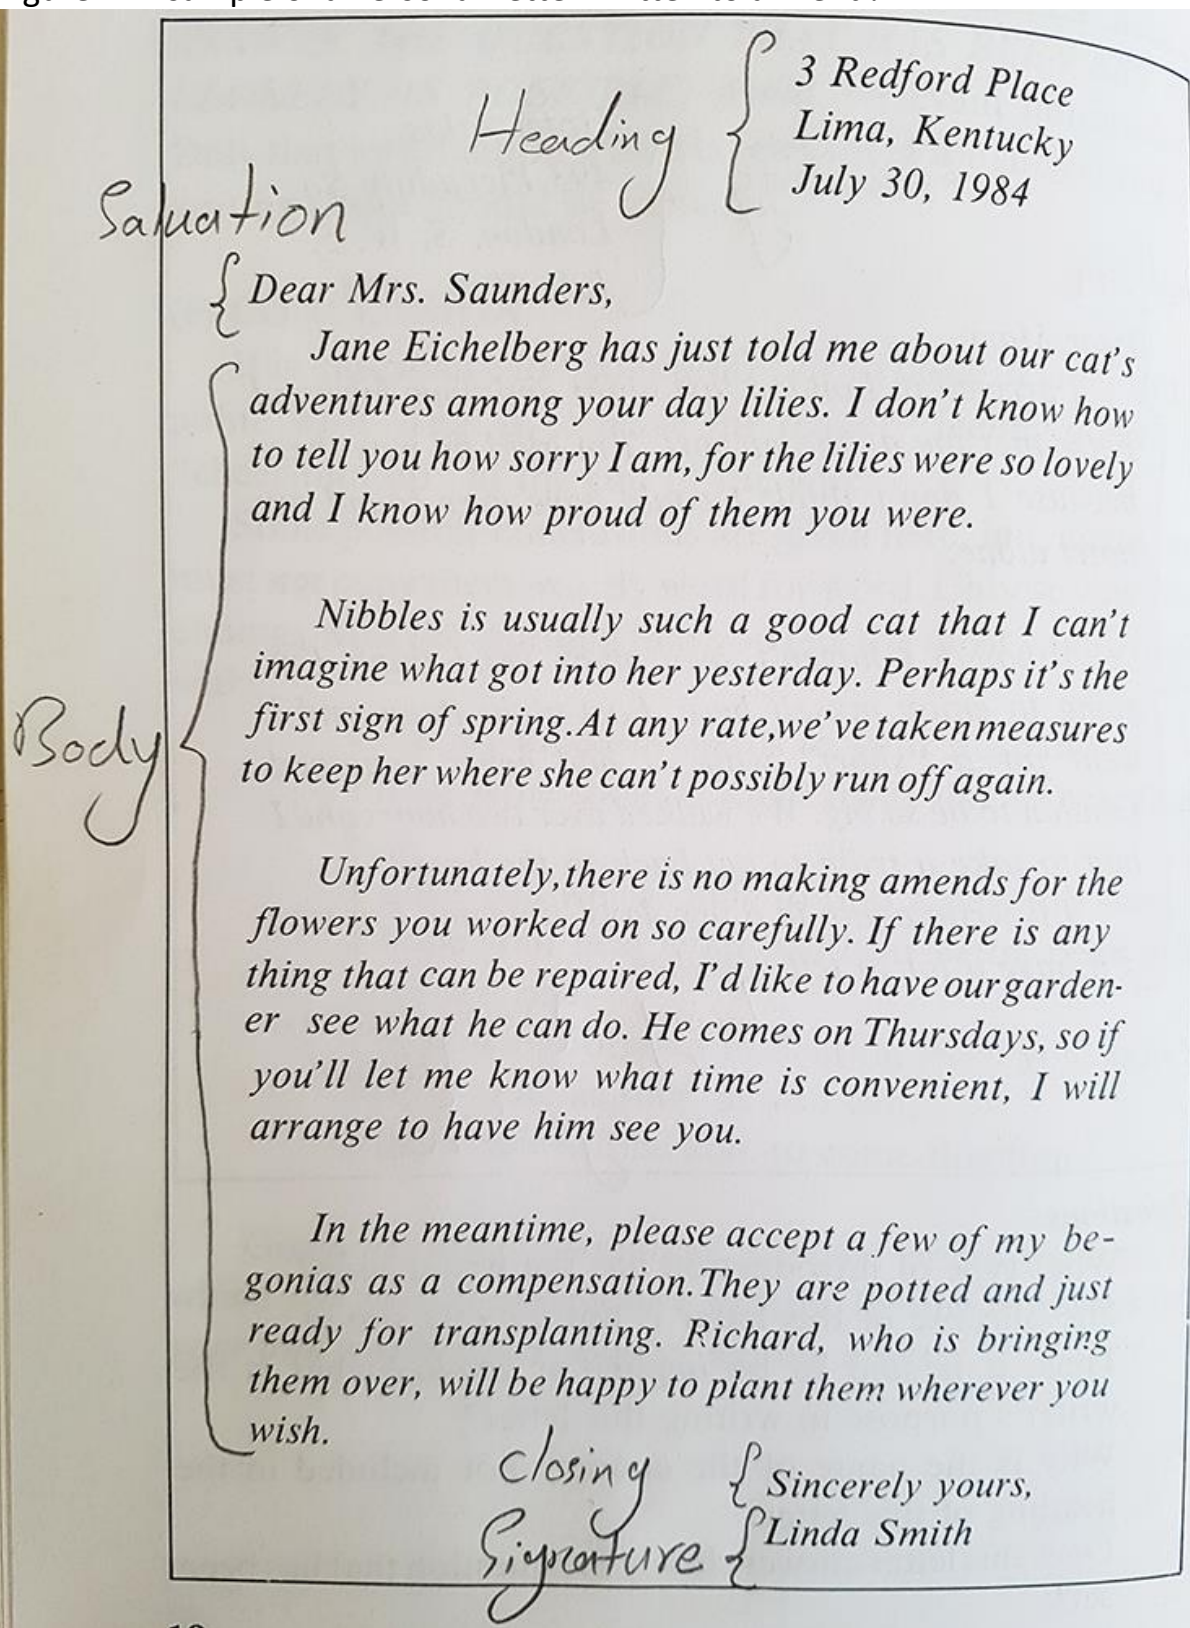 3 Redford Place
Heading
Lima, Kentucky
July 30, 1984
Saluation
Dear Mrs. Saunders,
Jane Eichelberg has just told me about our cat's
adventures among your day lilies. I don't know how
to tell you how sorry I am, for the lilies were so lovely
and I know how proud of them you were.
Nibbles is usually such a good cat that I can't
imagine what got into her yesterday. Perhaps it's the
first sign of spring. At any rate, we've taken measures
Body
to keep her where she can't possibly run off again.
Unfortunately, there is no making amends for the
flowers you worked on so carefully. If there is any
thing that can be repaired, I'd like to have our garden-
er see what he can do. He comes on Thursdays, so if
you'll let me know what time is convenient, I will
arrange to have him see you.
In the meantime, please accept a few of my be-
gonias as a compensation. They are potted and just
ready for transplanting. Richard, who is bringing
them over, will be happy to plant them wherever you
wish.
Closing
Sincerely yours,
Signature
Linda Smith